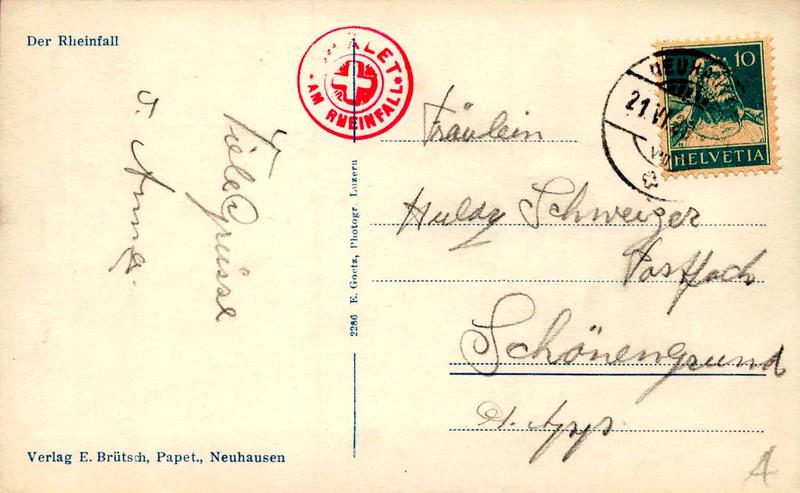 Der Rheinfall
CHALET
* AM RHEINFALL *
10
HELVETIA
NEUHAUSEN
21.VI
Viele Grüsse
v. Anna.
2286 E. Goetz, Photogr. Luzern
Fräulein
Huldy Schweizer
Postfach
Schönengrund
Ct. App.
Verlag E. Brütsch, Papet., Neuhausen
A